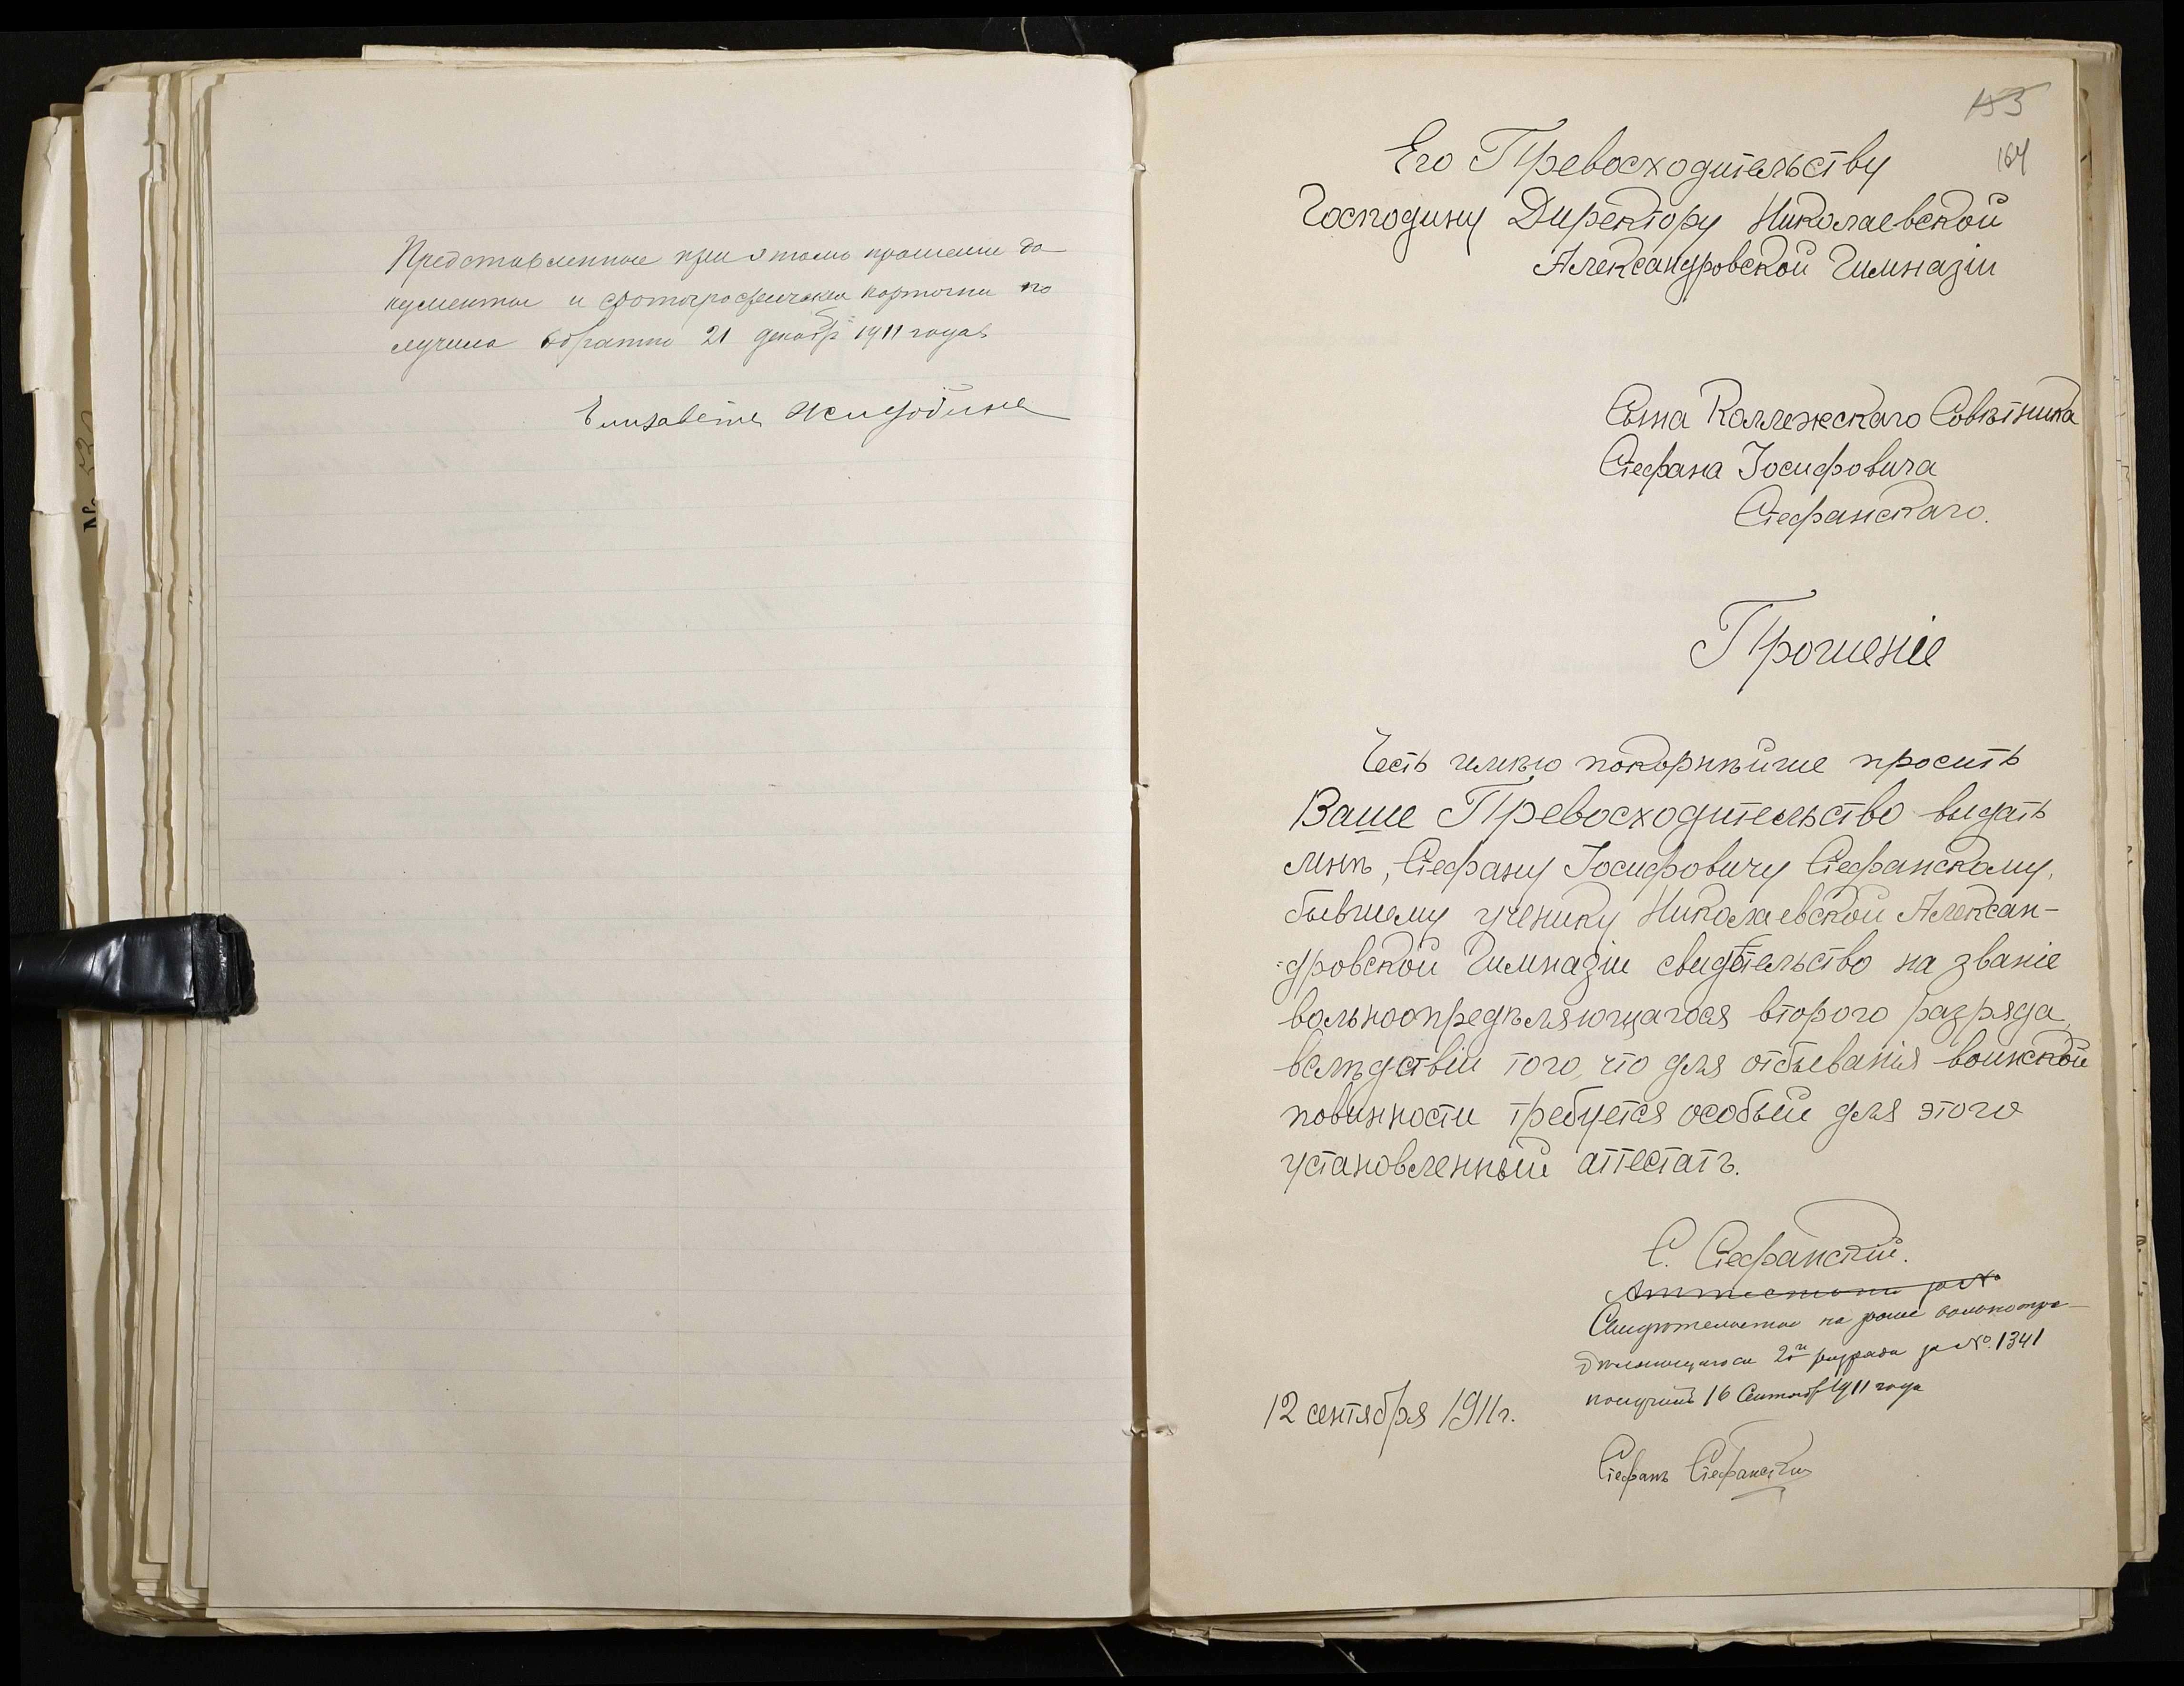 Представленные при этомъ прошеніи до-
кументы и фотографическія карточки по
лучила обратно 21 декабр 1911 года
Елизавета
155
164
Его Превосходительству
Господину Директору Николаевской
Александровской Гимназіи
Сына Коллежскаго Совѣтника
Стефана Іосифовича
Стефанскаго.
Прошеніе
Честь имѣю покорнѣйше просить
Ваше Превосходительство выдать
мнѣ, Стефану Іосифовичу Стефанскому,
бывшему ученику Николаевской Алексан-
-дровской Гимназіи свидѣтельство на званіе
вольноопредѣляющагося второго разряда,
вслѣдствіи того, что для отбыванія воинской
повинности требуется особый для этого
установленный аттестатъ.
С. Стефанскій.
Аттестатъ за №
Свидѣтельство на званіе вольноопре-
дѣляющагося 2го разряда за №. 1341
получилъ 16 Сентябр 1911 года
12 сентября 1911г.
Стефанъ Стефанскій